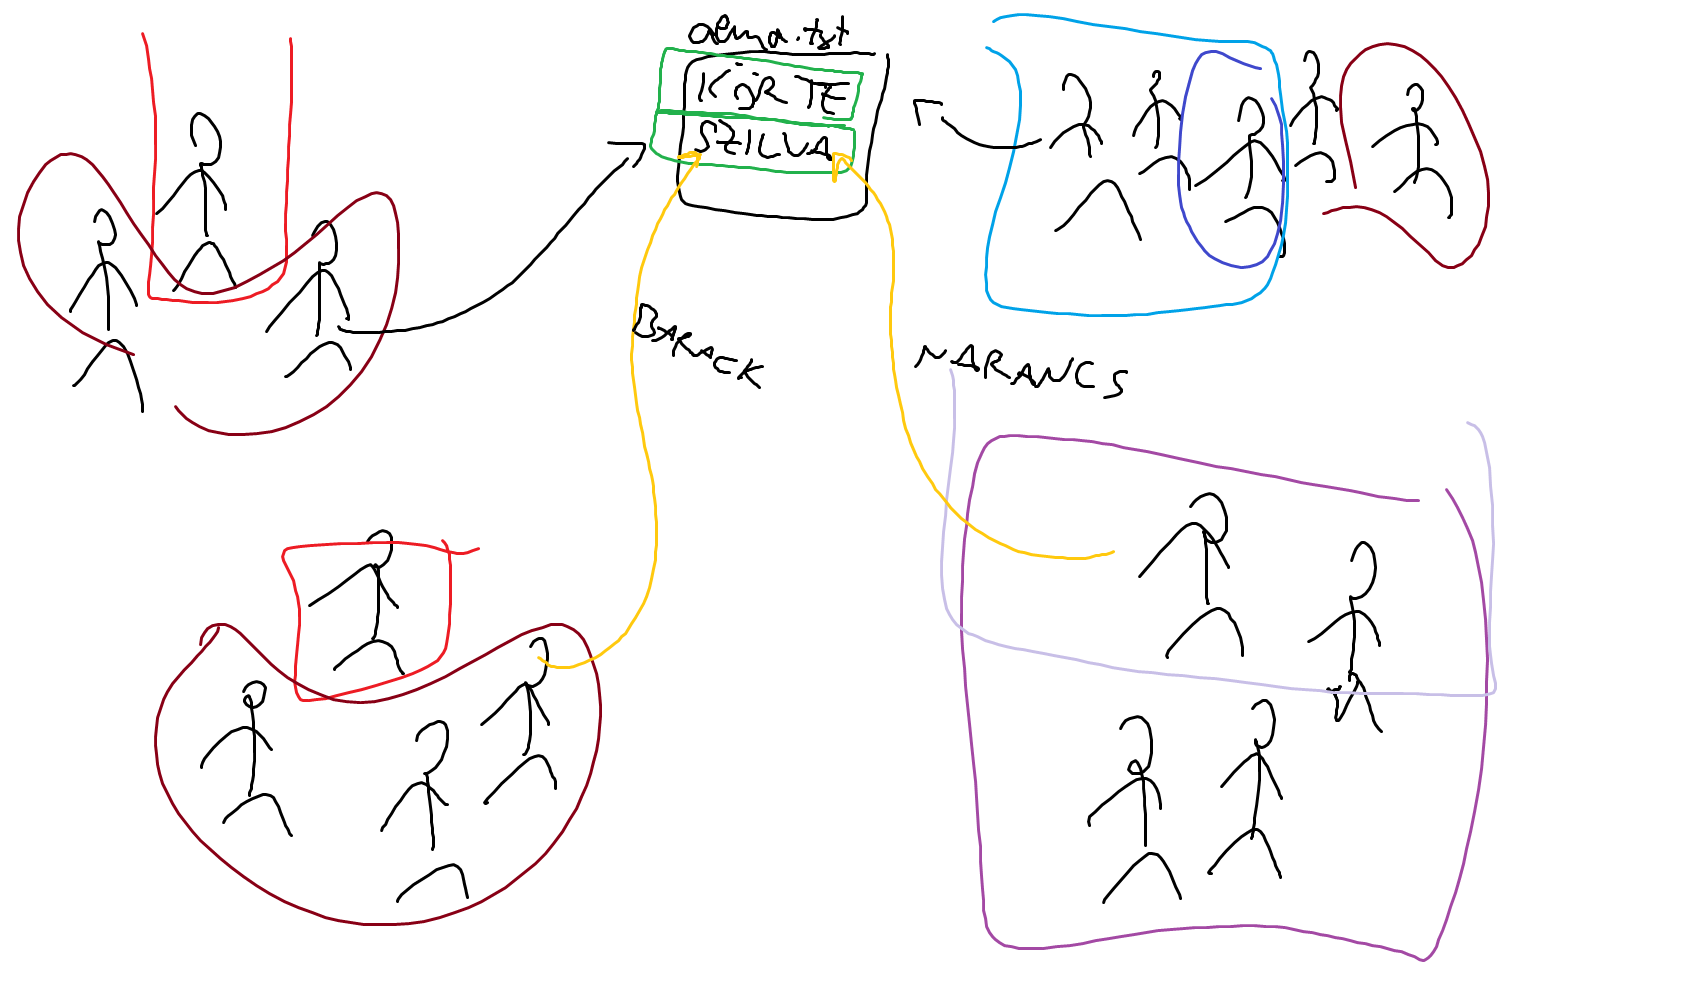 alma.txt
KÖRTE
SZILVA
BARACK
NARANCS